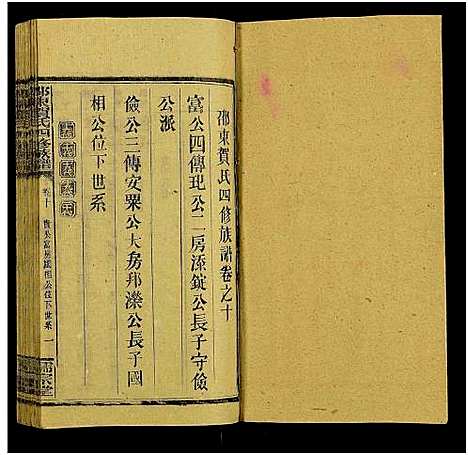 邵東賀氏四修族譜卷之十
富公四傳玘公二房添錠公長子守儉
公派
儉公三傳安粟公大房邦濼公長子國
相公位下世系
邵東賀氏四修族譜
卷十
世系 一